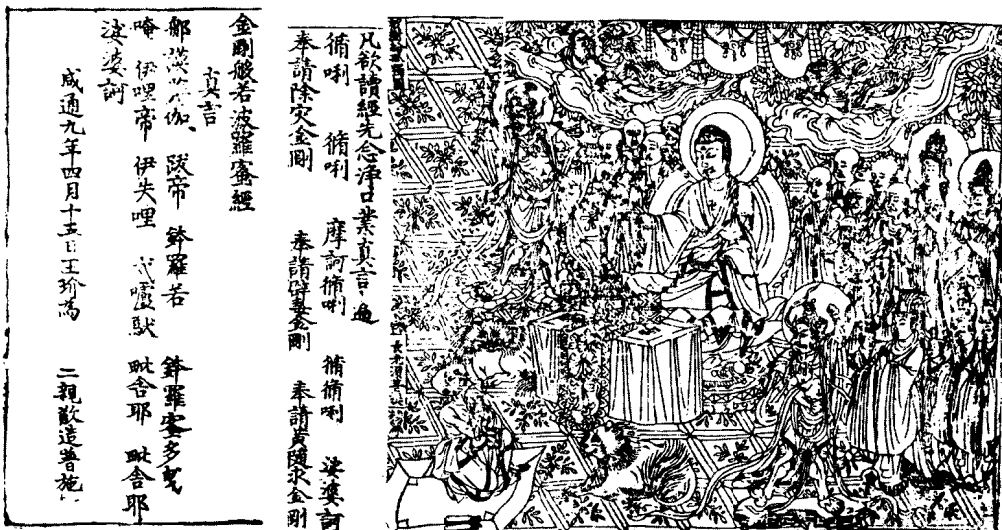 凡欲讀經先念淨口業真言遍
脩唎 脩唎 摩訶脩唎 脩脩唎 娑婆訶
奉請除灾金剛 奉請辟毒金剛 奉請黃隨求金剛
金剛般若波羅蜜經
真言
那謨伽 跋帝 鉢羅若 鉢羅蜜多曳
唵 伊哩帝 伊失哩 戍嚧馱 毗舍耶 毗舍耶
娑婆訶
咸通九年四月十五日王玠為 二親敬造普施